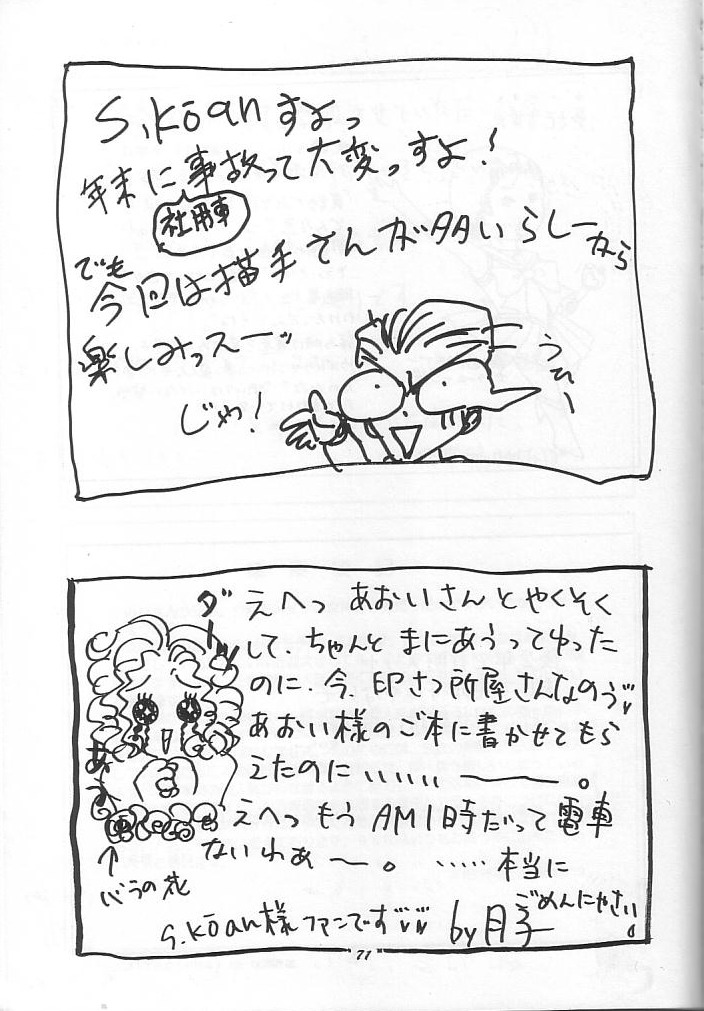 S.kōanすよっ
年末に事故って大変っすよ!
社用車
でも
今回は描手さんが多いらしーから
楽しみっスーッ
じゃ!
うひー
ダーッ
えへっ あおいさんとやくそく
して、ちゃんと まにあうってゆった
のに、今、印さつ所屋さんなのぅ
あおい様のご本に書かせてもら
えたのに、、、、、、 ――。
えへっ もう AM1時だって電車
ないわぁー。 ‥‥‥本当に
ごめんにゃさい。
↑
バラの花
S.kōan様ファンです by月子
77